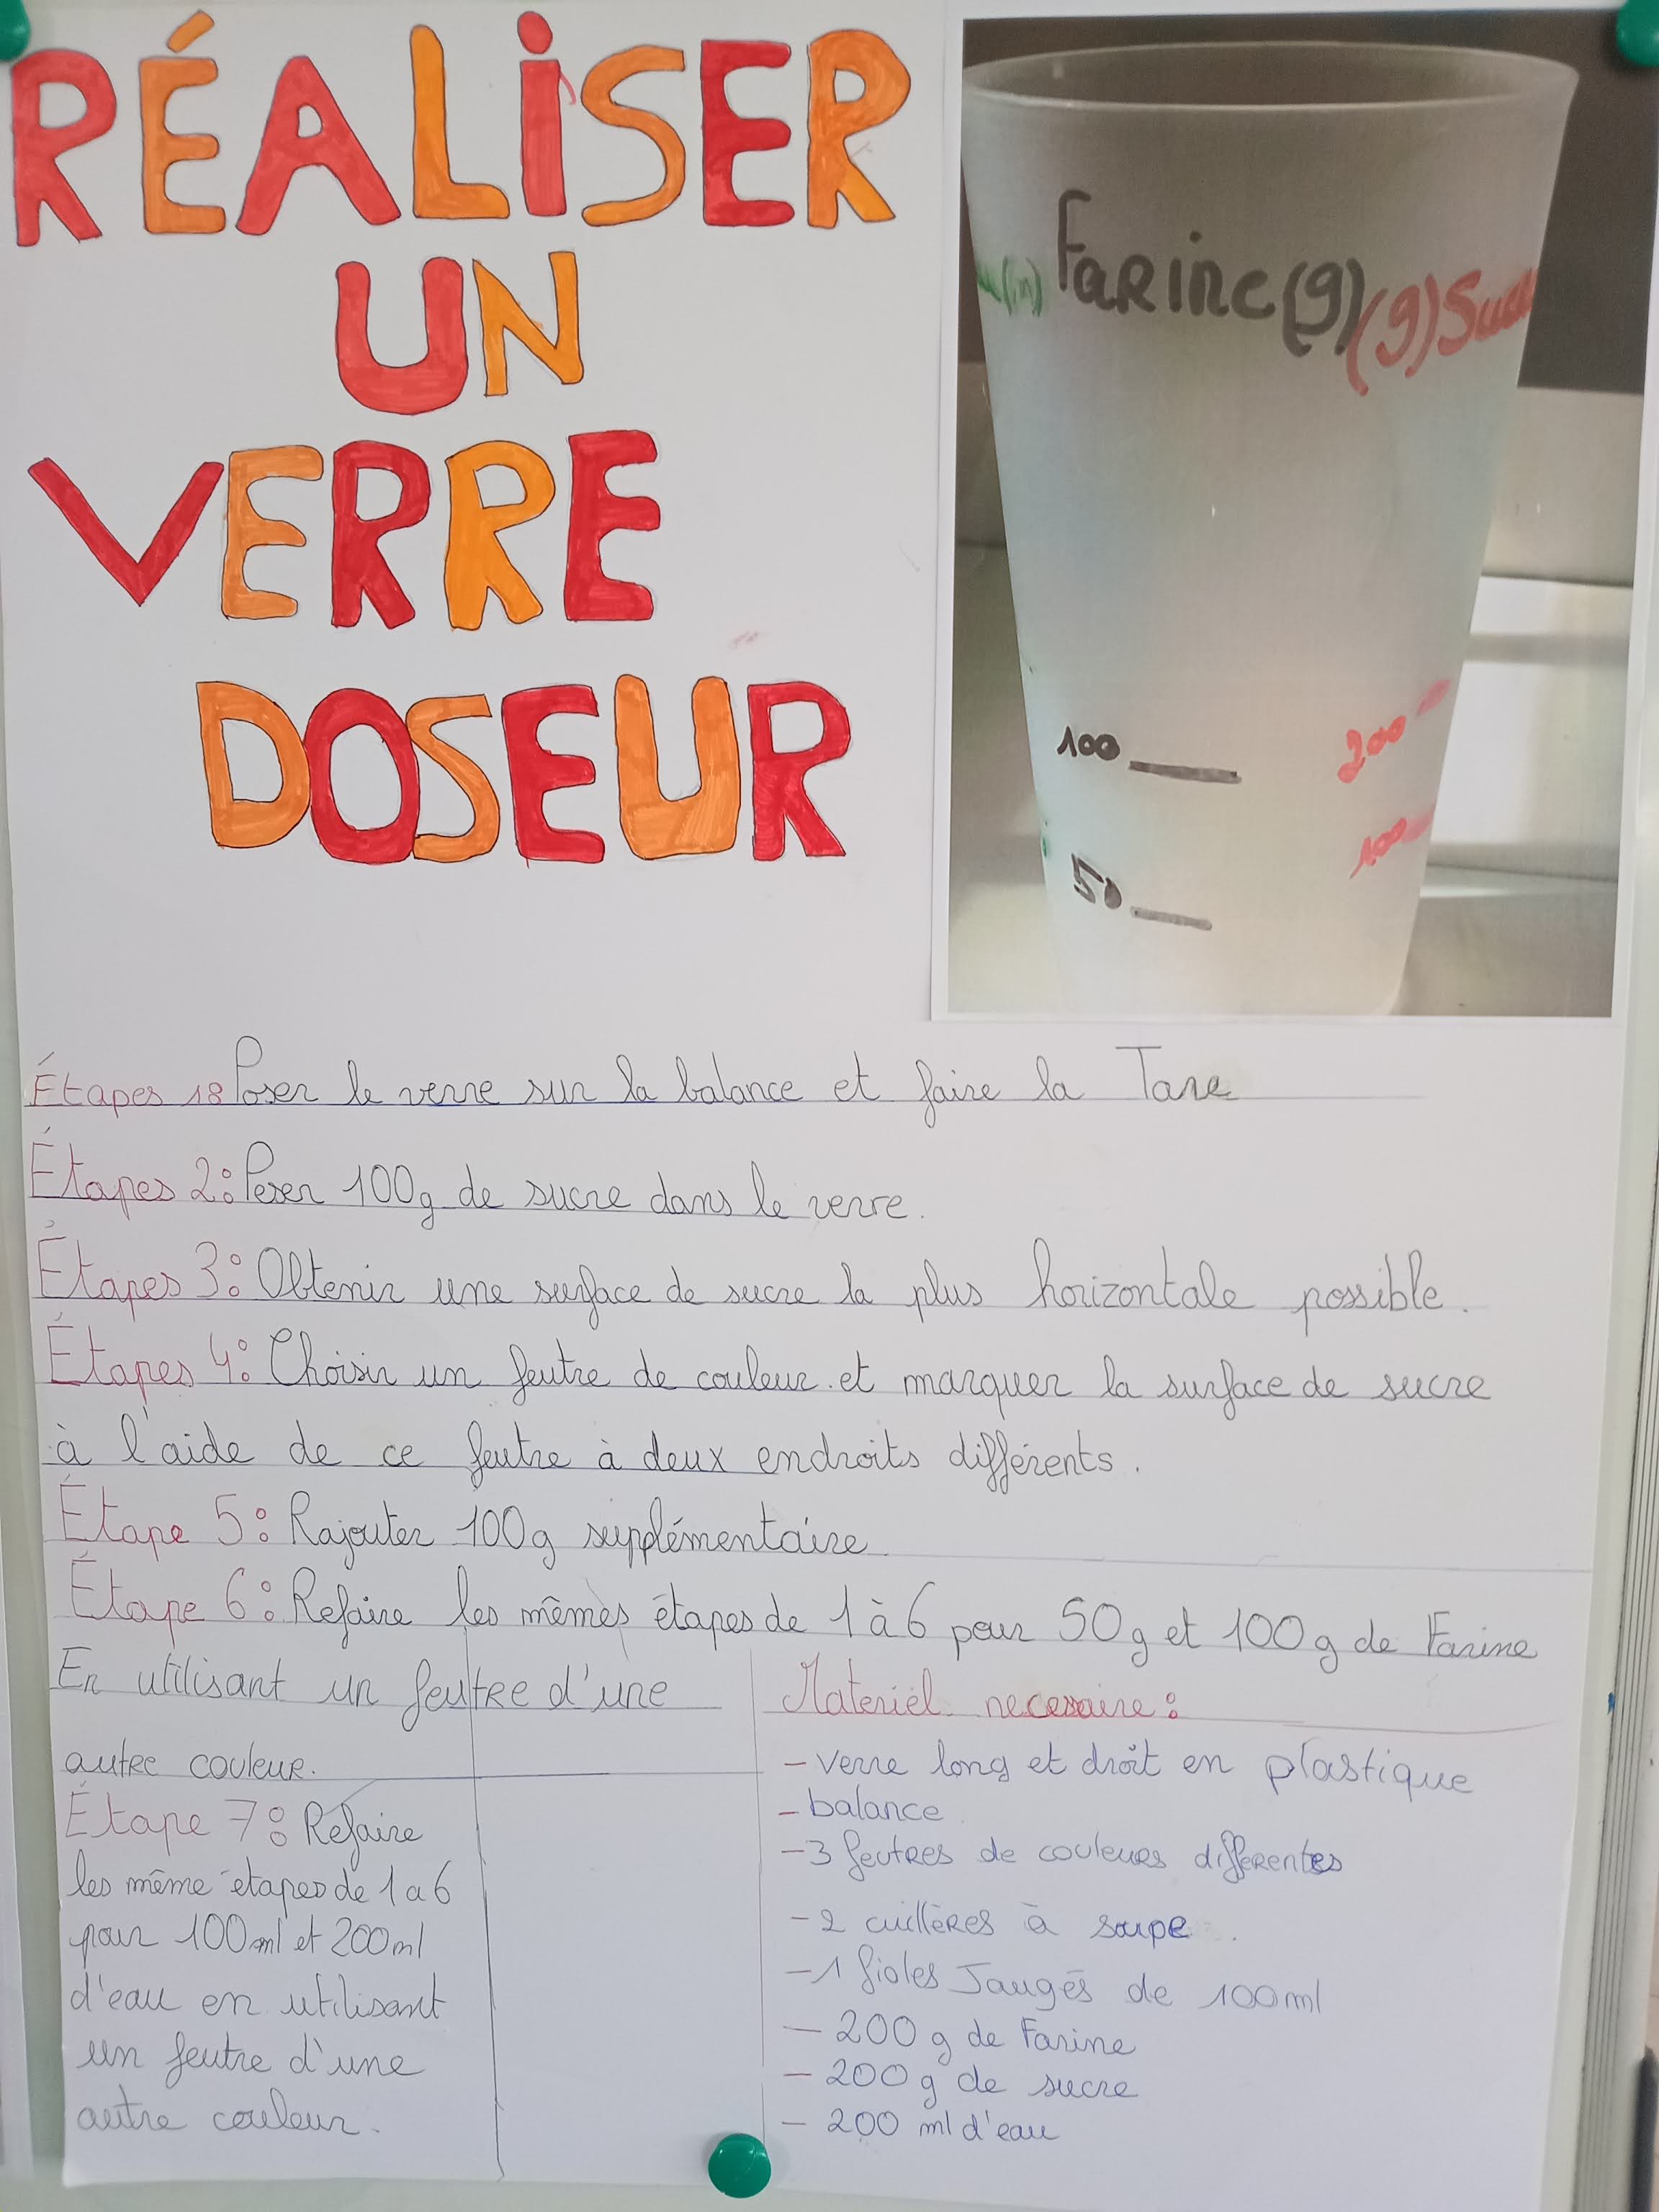 RÉALiSER
UN
VERRE
DOSEUR
Farine (g) (g) Sucre
100
200
100
50
Étapes 1: Poser le verre sur la balance et faire la Tare
Étapes 2: Peser 100g de sucre dans le verre.
Étapes 3: Obtenir une surface de sucre la plus horizontale possible.
Étapes 4: Choisir un feutre de couleur et marquer la surface de sucre
à l'aide de ce feutre à deux endroits différents.
Étape 5: Rajouter 100g supplémentaire
Étape 6: Refaire les mêmes étapes de 1 à 6 pour 50g et 100g de Farine
En utilisant un feutre d'une
autre couleur.
Étape 7: Refaire
les même étapes de 1 a 6
pour 100ml et 200ml
d'eau en utilisant
un feutre d'une
autre couleur.
Materiel necessaire:
- verre long et droit en plastique
- balance
- 3 feutres de couleurs differentes
- 2 cuillères à soupe
- 1 fioles Jaugés de 100ml
- 200 g de Farine
- 200 g de sucre
- 200 ml d'eau